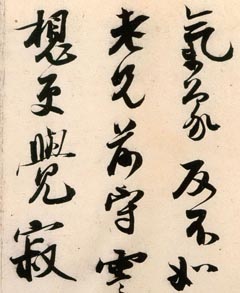 氣象反不如
老兄前守
想更覺寂